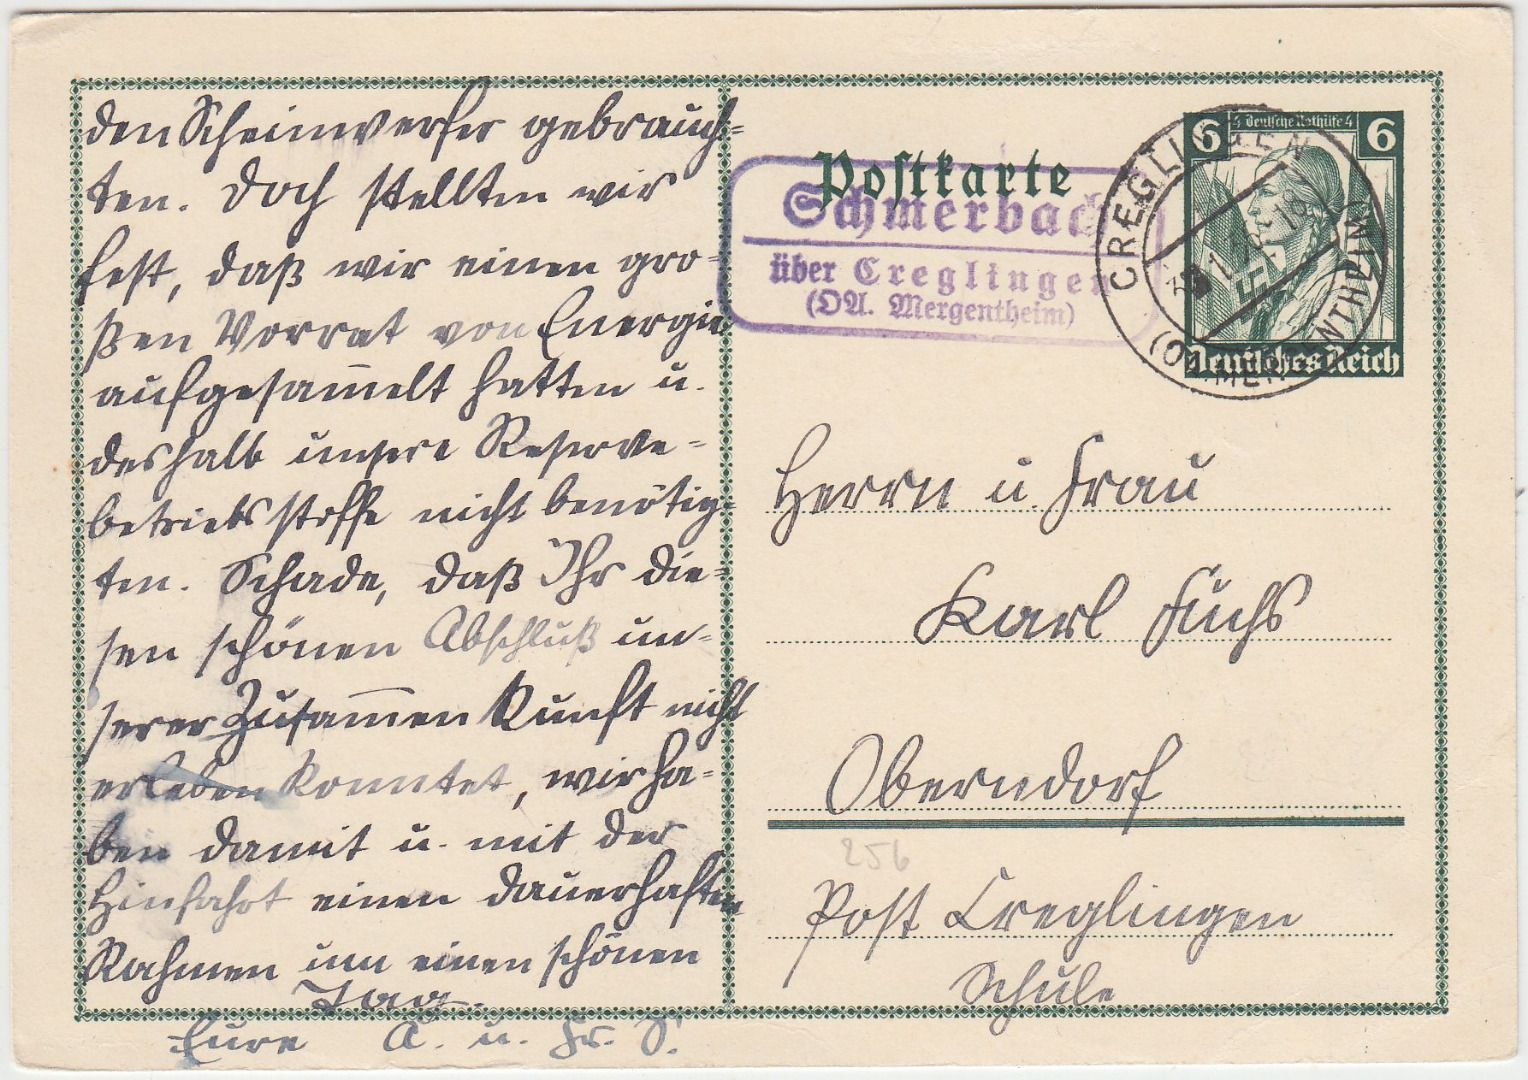 den Scheinwerfer gebrauch=
ten. Doch stellten wir
fest, daß wir einen gro=
ßen Vorrat von Energie
aufgesam̅elt hatten u.
deshalb unsere Reserve=
betriebsstoffe nicht benötig=
ten. Schade, daß Ihr die=
sen schönen Abschluß un=
serer Zusam̅enkunft nicht
erleben konntet, wir ha=
ben damit u. mit der
Hinfahrt einen dauerhaften
Rahmen um einen schönen
Tag.
Eure A. u. Fr. S.
Postkarte
Schmerbach
über Creglingen
(OA. Mergentheim)
CREGLINGEN
(OA. MERGENTHEIM)
6 4 Deutsche Nothilfe 4 6
Deutsches Reich
Herrn u. Frau
Karl Fuchs
Oberndorf
256
Post Creglingen
Schule